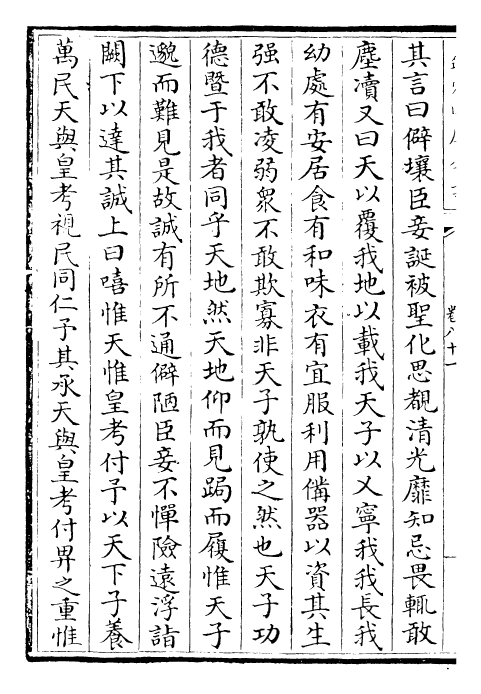 卷八十一
其言曰僻壤臣妾誕被聖化思覩清光靡知忌畏輒敢
塵瀆又曰天以覆我地以載我天子以乂寧我我長我
幼處有安居食有和味衣有宜服利用備器以資其生
强不敢凌弱衆不敢欺寡非天子孰使之然也天子功
德暨于我者同乎天地然天地仰而見跼而履惟天子
邈而難見是故誠有所不通僻陋臣妾不憚險遠浮詣
闕下以達其誠上曰嘻惟天惟皇考付予以天下子養
萬民天與皇考視民同仁予其承天與皇考付畀之重惟